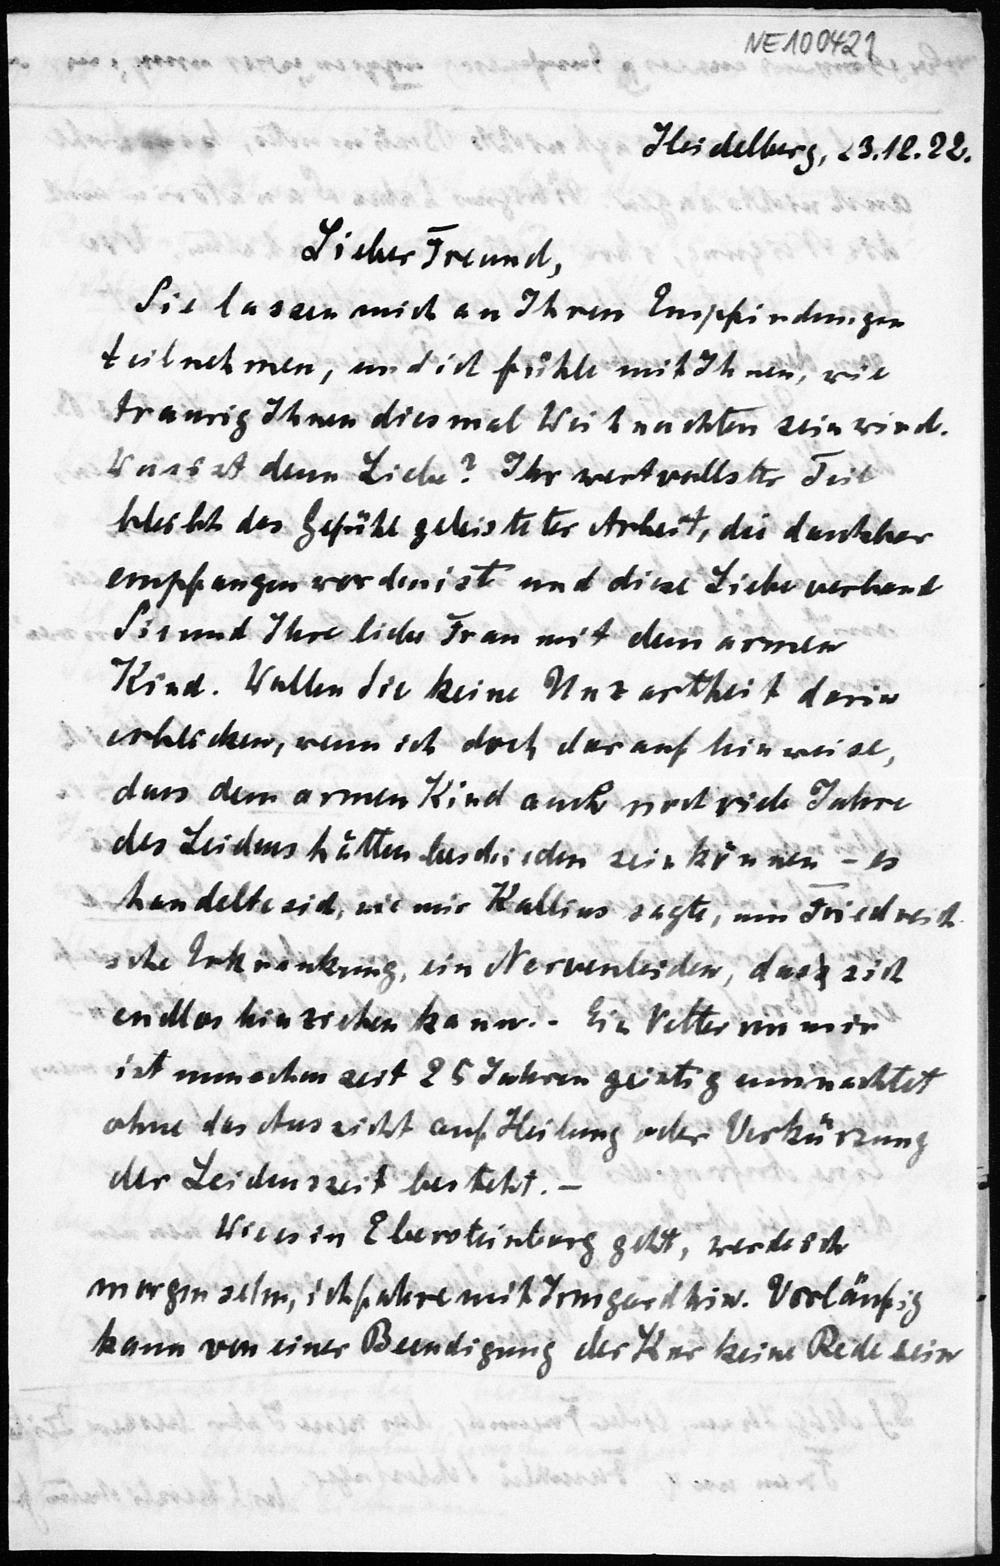 NE100421
Heidelberg, 23.12.22.
Lieber Freund,
Sie lassen mich an Ihren Empfindungen
teilnehmen, und ich fühle mit Ihnen, wie
traurig Ihnen diesmal Weihnachten sein wird.
Was ist denn Liebe? Ihr wertvollster Teil
bleibt das Gefühl geleisteter Arbeit, die dankbar
empfangen worden ist und diese Liebe verband
Sie und Ihre liebe Frau mit dem armen
Kind. Wollen Sie keine Unzartheit darin
erblicken, wenn ich doch darauf hinweise,
dass dem armen Kind auch noch viele Jahre
des Leidens hätten beschieden sein können – es
handelte sich, wie mir Kallius sagte, um Friedreich
sche Erkrankung, ein Nervenleiden, dass sich
endlos hinziehen kann. - Ein Vetter von mir
ist nunmehr seit 25 Jahren geistig umnachtet
ohne das Aussicht auf Heilung oder Verkürzung
der Leidenszeit besteht. –
Wie es in Ebersteinburg geht, werde ich
morgen sehn, ich fahre mit Irmgard hin. Vorläufig
kann von einer Beendigung der Kur keine Rede sein